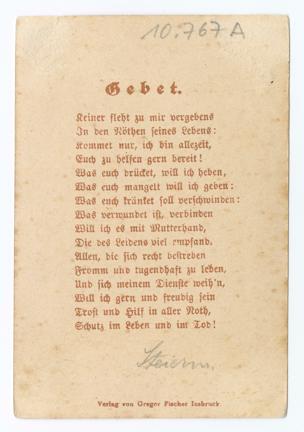 10.767 A
Gebet.
Keiner fleht zu mir vergebens
In den Nöthen seines Lebens:
Kommet nur, ich bin allezeit,
Euch zu helfen gern bereit!
Was euch drücket, will ich heben,
Was euch mangelt will ich geben:
Was euch kränket soll verschwinden:
Was verwundet ist, verbinden
Will ich es mit Mutterhand,
Die des Leidens viel empfand.
Allen, die sich recht bestreben
Fromm und tugendhaft zu leben,
Und sich meinem Dienste weih'n,
Will ich gern und freudig sein
Trost und Hilf in aller Noth,
Schutz im Leben und im Tod!
Steierm.
Verlag von Gregor Fischer Innsbruck.